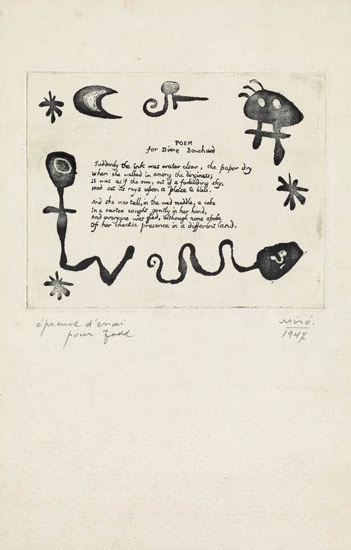 POEM
for Diane Bouchard
Suddenly the ink was water clear, the paper dry
When she walked in among the
It was as if the sun, out of a forbidding sky,
read out its rays upon a place to bless.
And she was tall, in the mad middle, a cake
In a vortex caught, gently in her hand,
And everyone was glad, although none spoke
Of her chaotic presence in a different land.
épreuve d'essai
pour Todd
Miró.
1947